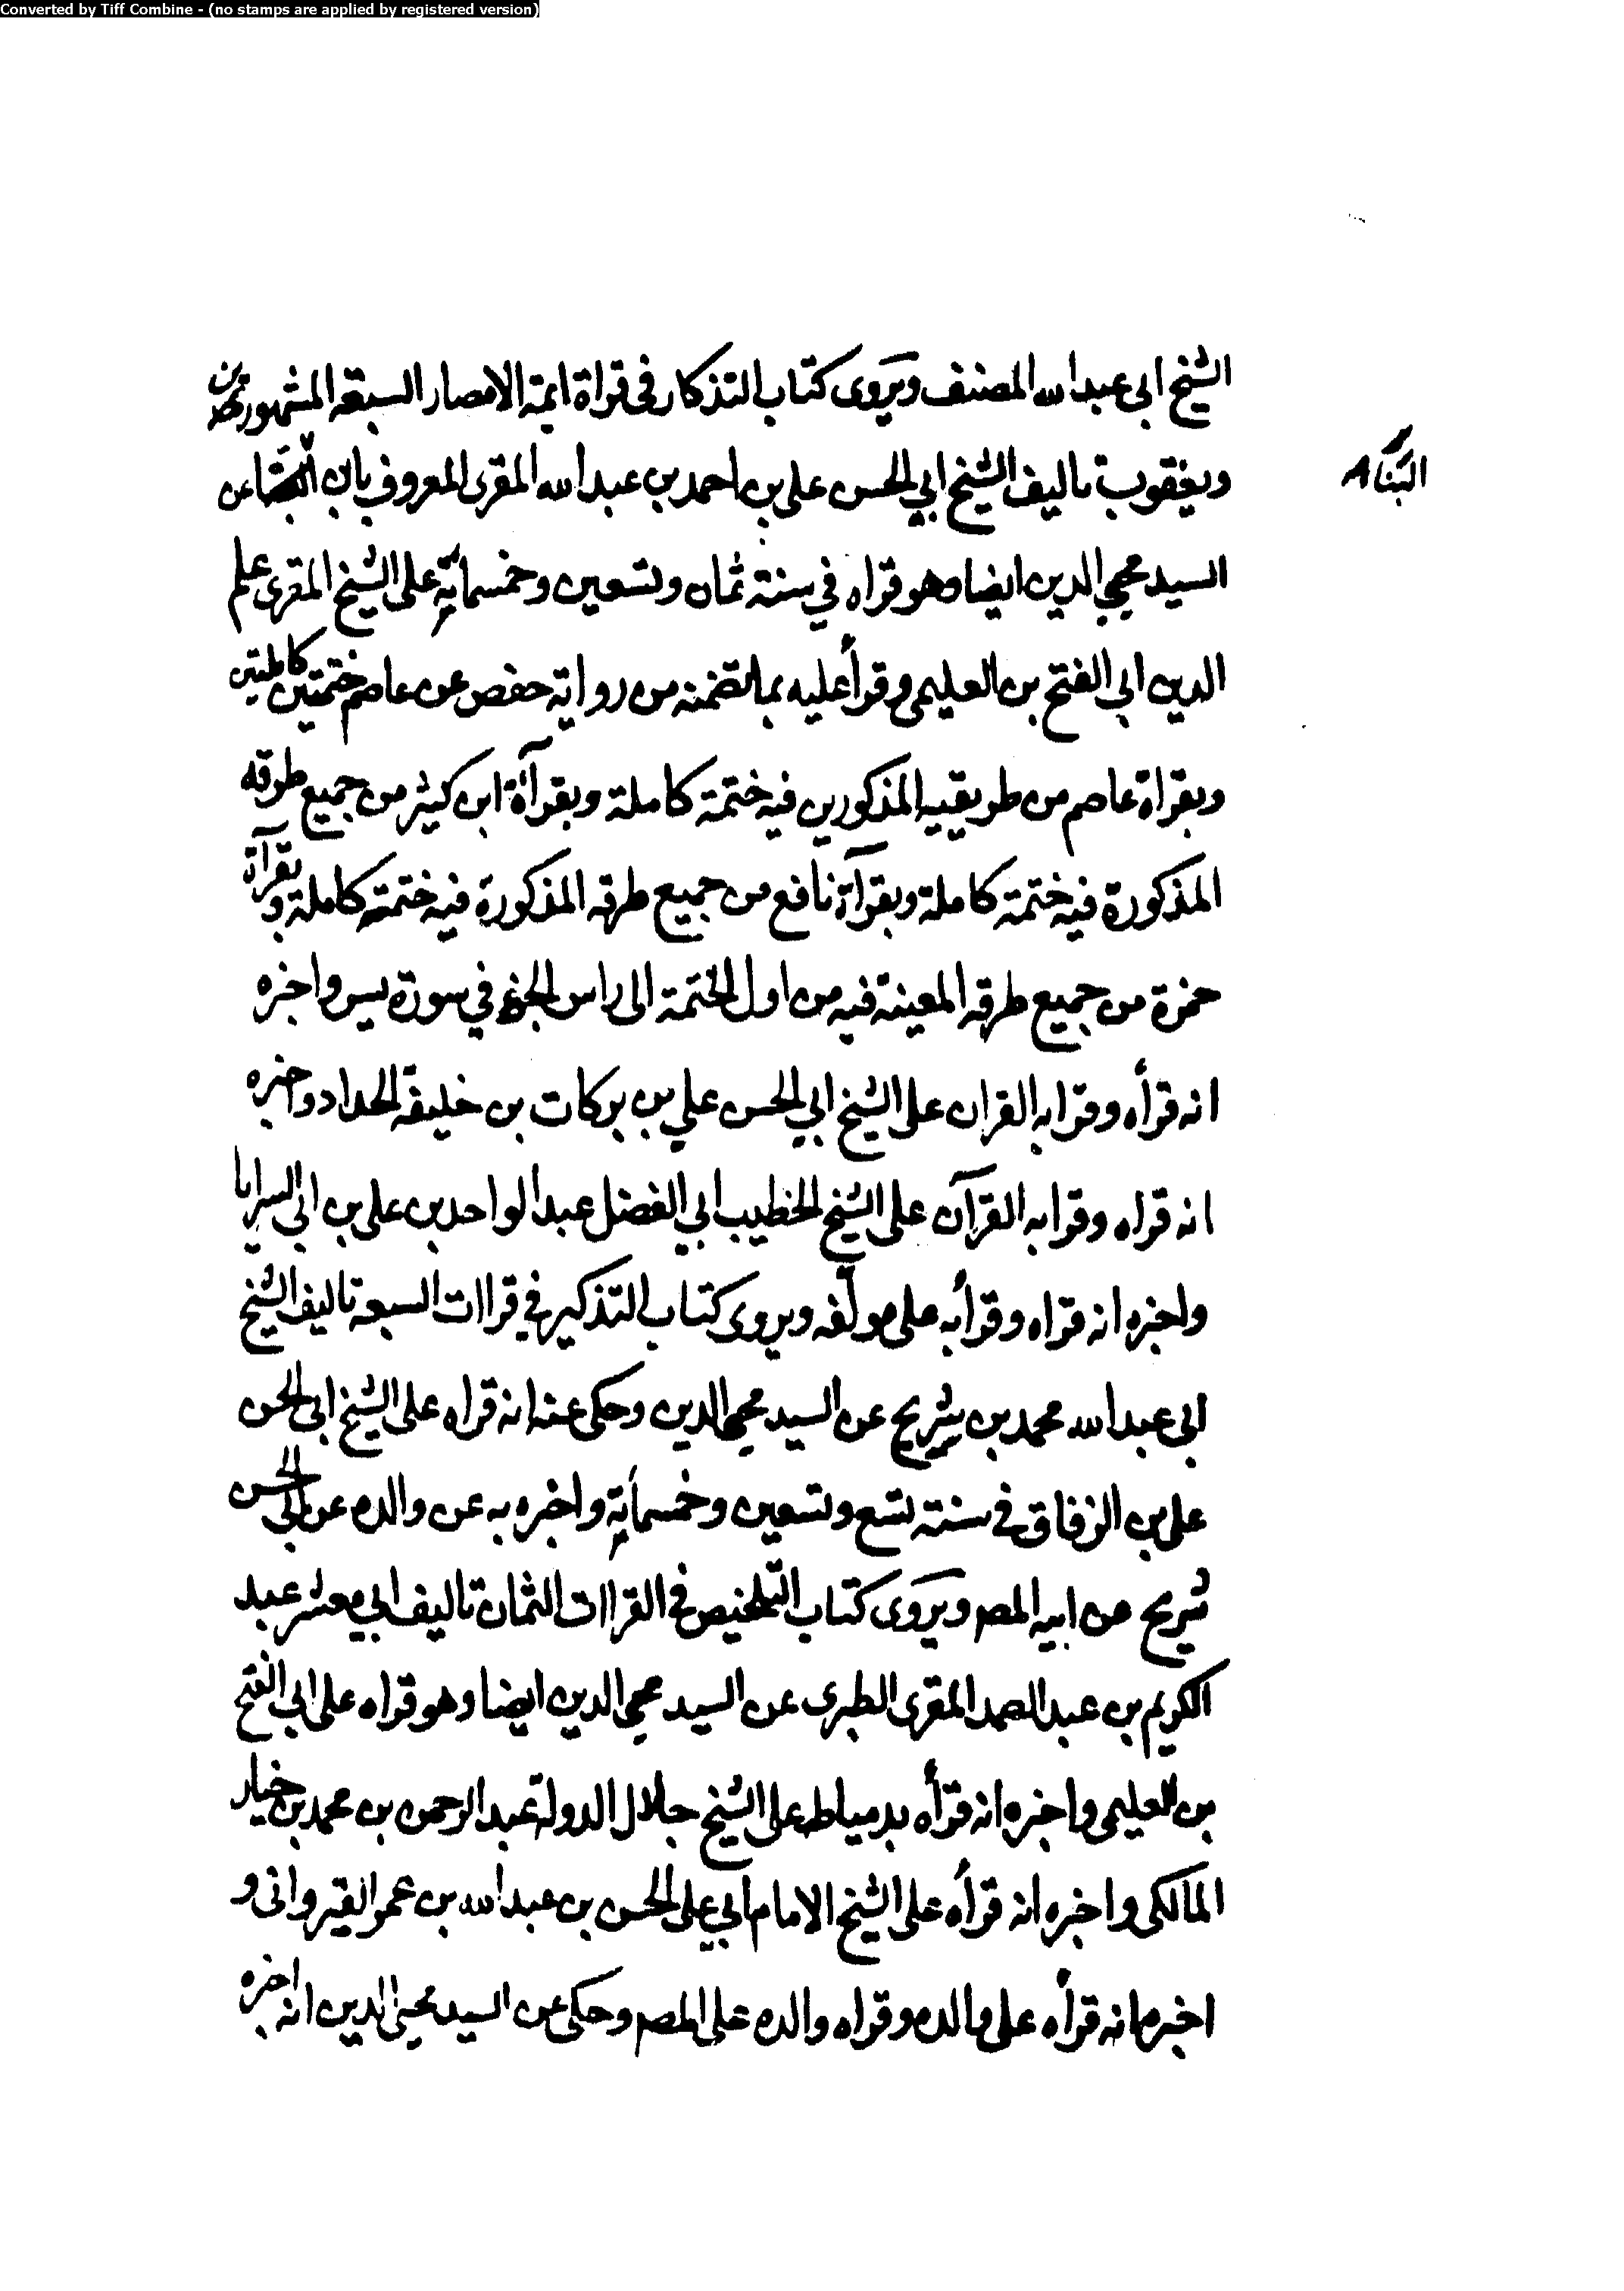 Converted by Tiff Combine - (no stamps are applied by registered version)
الشيخ ابى عبدالله المصنف ويروى كتاب التذكار فى قراة ايمة الامصار السبعة المشهورين
ويعقوب تاليف الشيخ ابي الحسن على بن احمد بن عبدالله المقرى المعروف بابن عن
البنا
السيد محيي الدين ايضا وهو قراه في سنة ثمان وتسعين وخمسماية على الشيخ المقرى علم
الدين ابي الفتح بن العليمى وقرأ عليه بما تضمنه من رواية حفص عن عاصم ختمتين كاملتين
وبقراة عاصم من طريقيه المذكورين فيه ختمة كاملة وبقرآة ابن كثير من جميع طرقه
المذكورة فيه ختمة كاملة وبقرآة نافع من جميع طرقه المذكورة فيه ختمة كاملة وبقرآة
حمزة من جميع طرقه المعينة فيه من اول الختمة الى راس الجزء في سورة يس واخبره
انه قرأه وقرا به القران على الشيخ ابي الحسن علي بن بركات بن خليفة الحداد واخبره
انه قراه وقرا به القرآن على الشيخ الخطيب ابي الفضل عبد الواحد بن على بن ابى السرايا
واخبره انه قراه وقرأ به على مولفه ويروى كتاب التذكير في قراات السبعة تاليف الشيخ
ابي عبدالله محمد بن شريح عن السيد محيي الدين وحكى عنه انه قراه على الشيخ ابى الحسن
على بن الزقاق فى سنة تسع وتسعين وخمسماية واخبره به عن والده عن ابى الحسن
شريح عن ابيه المصم ويروى كتاب التلخيص فى القراات الثمان تاليف ابي معشر عبد
الكريم بن عبد الصمد المقرى الطبرى عن السيد محيي الدين ايضا وهو قراه على ابي الفتح
بن العليمى واخبره انه قرأه بدمياط على الشيخ جلال الدولة عبد الرحمن بن محمد بن خيار
المالكى واخبره انه قرأه على الشيخ الامام ابي على الحسن بن عبدالله بن عمر القيروانى و
اخبره انه قرأه على والده وقراه والده على المصم وحكى عن السيد محيى الدين انه اخبره